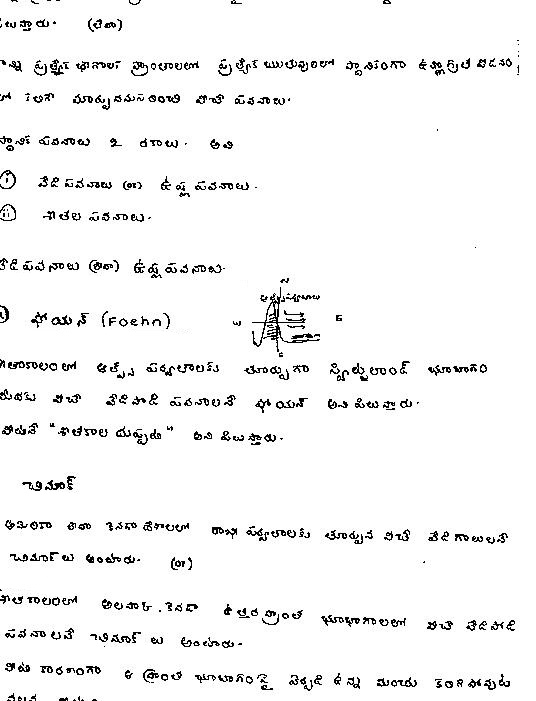 పిలుస్తారు. (లేదా)
కొన్ని ప్రత్యేక భూభాగాల ప్రాంతాలలో ప్రత్యేక ఋతువులలో స్థానికంగా ఉష్ణోగ్రత పీడనం
లో కలిగే మార్పుననుసరించి వీచే పవనాలు.
స్థానిక పవనాలు 2 రకాలు. అవి
i వేడి పవనాలు (or) ఉష్ణ పవనాలు.
ii శీతల పవనాలు.
వేడి పవనాలు (లేదా) ఉష్ణ పవనాలు.
ఫోయన్ (Foehn)
N
ఆల్ప్స్ పర్వతాలు
W E
S
శీతాకాలంలో ఆల్ప్స్ పర్వతాలకు తూర్పుగా స్విట్జర్లాండ్ భూభాగం
మీదకు వీచే వేడిపొడి పవనాలనే ఫోయన్ అని పిలుస్తారు.
వీటినే "శీతకాల దుప్పటి" అని పిలుస్తారు.
చినూక్
అమెరికా తథా కెనడా దేశాలలో రాకీ పర్వతాలకు తూర్పున వీచే వేడిగాలులనే
చినూక్ లు అంటారు. (or)
శీతాకాలంలో అలస్కా, కెనడా ఉత్తర ప్రాంత భూభాగాలలో వీచే వేడిపొడి
పవనాలనే చినూక్ లు అంటారు.
వీటి కారణంగా ఆ ప్రాంత భూభాగంపై ఏర్పడి ఉన్న మంచు కరిగిపోవుట